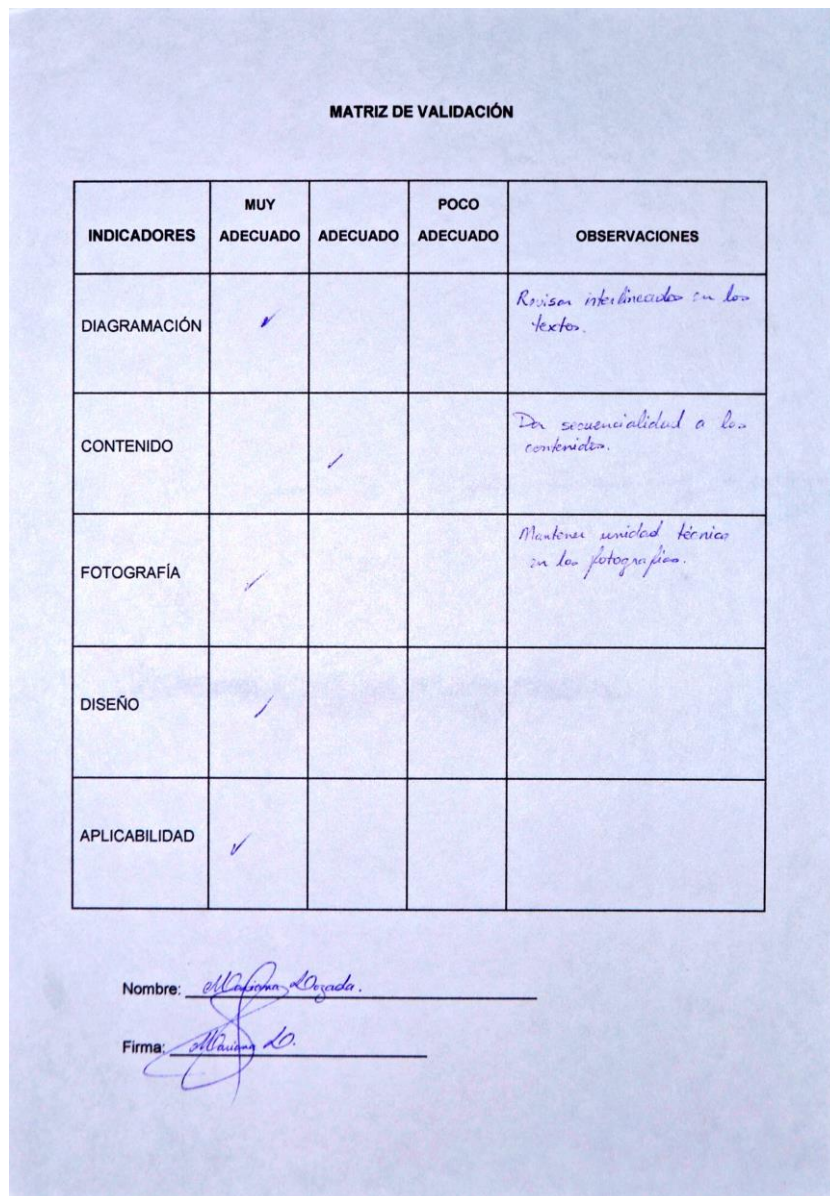 MATRIZ DE VALIDACIÓN
INDICADORES MUY ADECUADO ADECUADO POCO ADECUADO OBSERVACIONES
DIAGRAMACIÓN ✓ Revisar interlineados en los
textos.
CONTENIDO ✓ Dar secuencialidad a los
contenidos.
FOTOGRAFÍA ✓ Mantener unidad técnica
en las fotografías.
DISEÑO ✓
APLICABILIDAD ✓
Nombre: Mariana Lozada.
Firma: Mariana LO.